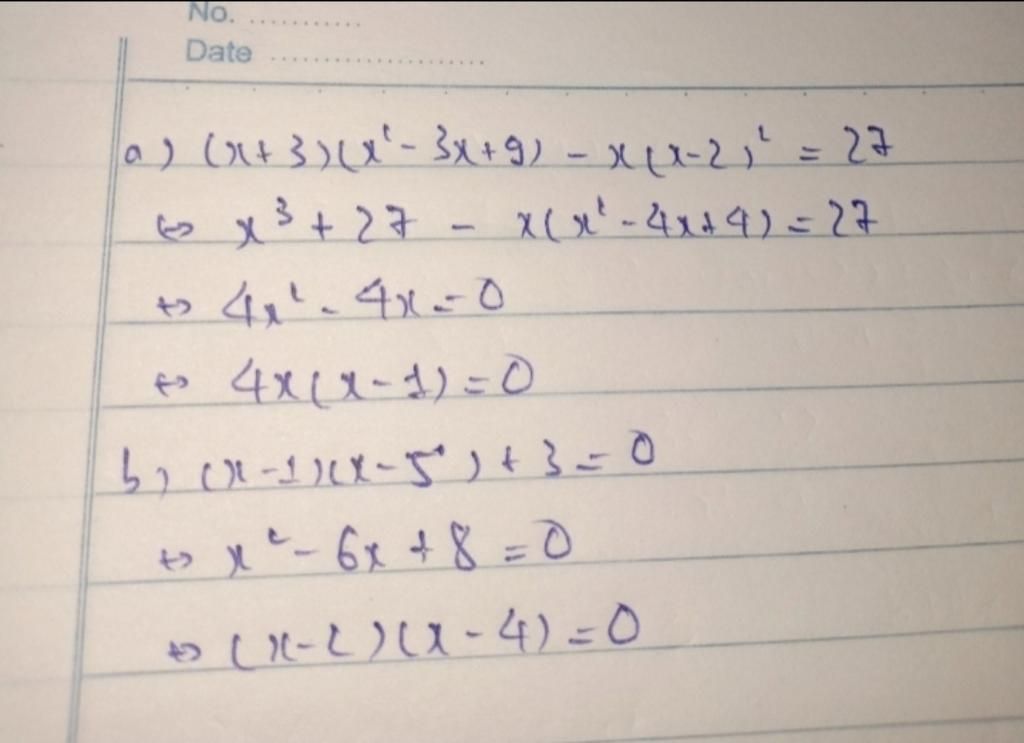 No. ............
Date .....................
a) (x+3)(x²-3x+9) - x(x-2)² = 27
⇔ x³ + 27 - x(x²-4x+4) = 27
⇔ 4x² - 4x = 0
⇔ 4x(x-1) = 0
b) (x-1)(x-5) + 3 = 0
⇔ x² - 6x + 8 = 0
⇔ (x-2)(x-4) = 0